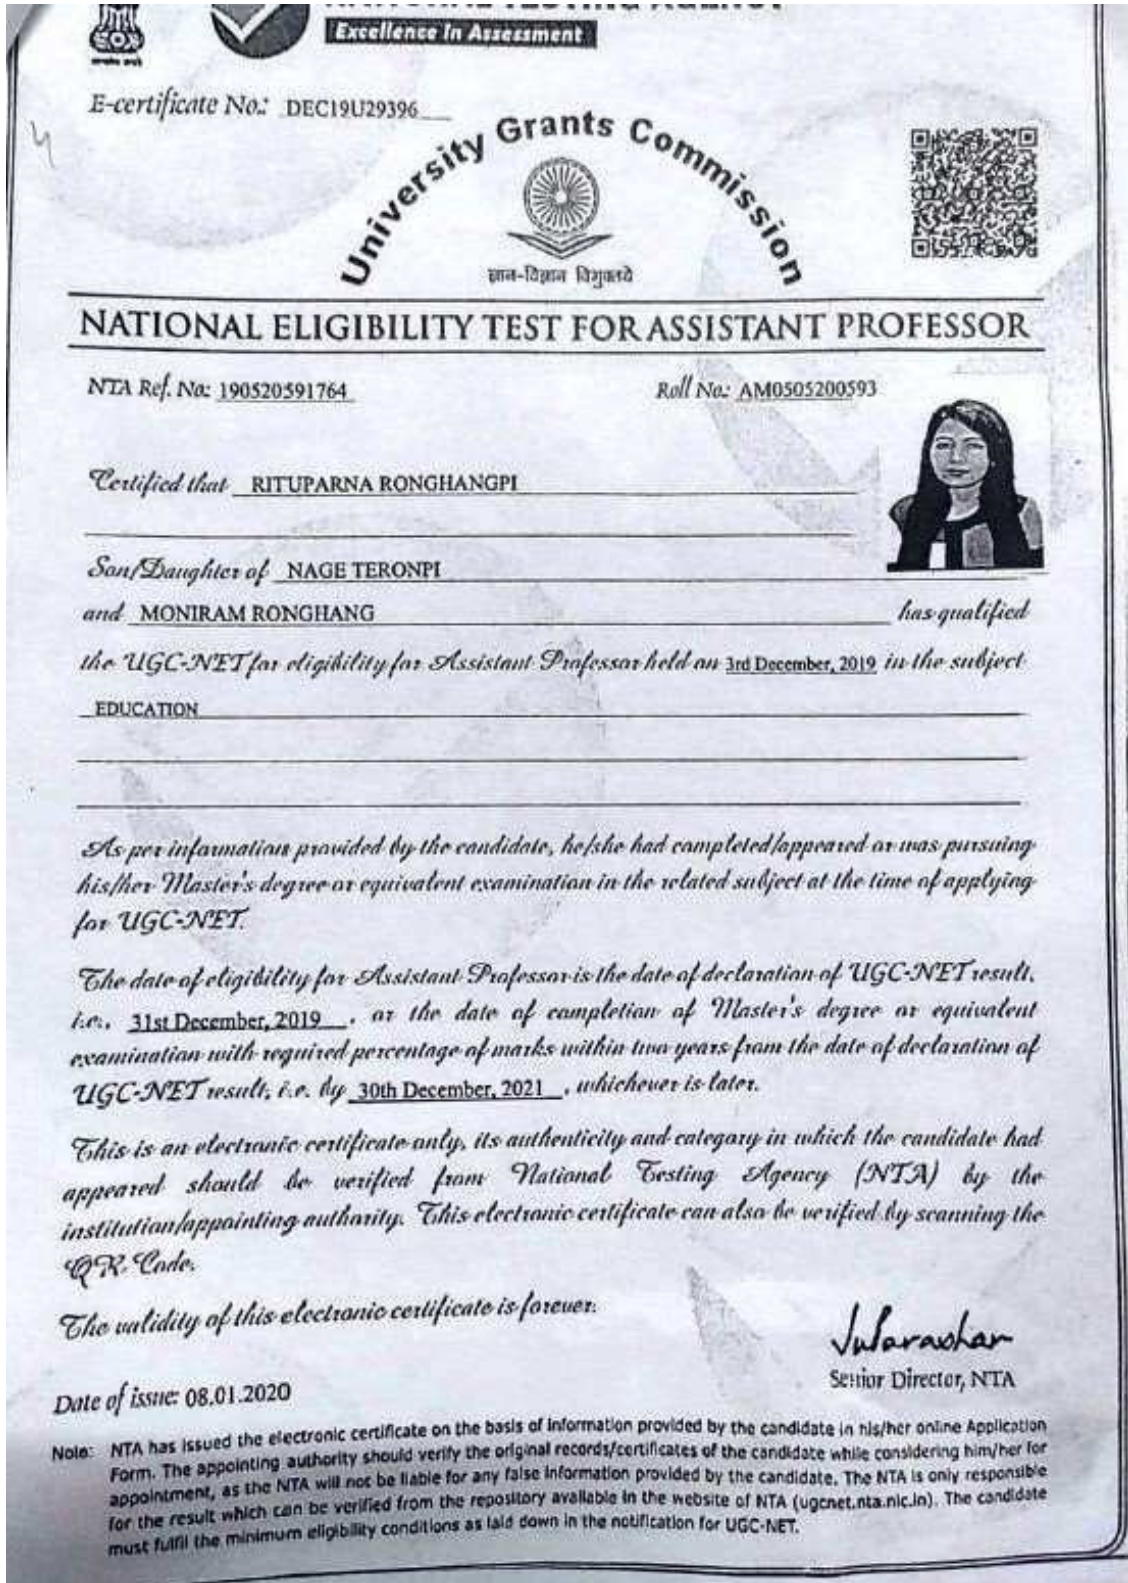 NATIONAL TESTING AGENCY
Excellence in Assessment
E-certificate No.: DEC19U29396
University Grants Commission
ज्ञान-विज्ञान विमुक्तये
NATIONAL ELIGIBILITY TEST FOR ASSISTANT PROFESSOR
NTA Ref. No: 190520591764 Roll No.: AM0505200593
Certified that RITUPARNA RONGHANGPI
Son/Daughter of NAGE TERONPI
and MONIRAM RONGHANG has qualified
the UGC-NET for eligibility for Assistant Professor held on 3rd December, 2019 in the subject
EDUCATION
As per information provided by the candidate, he/she had completed/appeared or was pursuing
his/her Master's degree or equivalent examination in the related subject at the time of applying
for UGC-NET.
The date of eligibility for Assistant Professor is the date of declaration of UGC-NET result,
i.e., 31st December, 2019, or the date of completion of Master's degree or equivalent
examination with required percentage of marks within two years from the date of declaration of
UGC-NET result, i.e. by 30th December, 2021, whichever is later.
This is an electronic certificate only, its authenticity and category in which the candidate had
appeared should be verified from National Testing Agency (NTA) by the
institution/appointing authority. This electronic certificate can also be verified by scanning the
QR Code.
The validity of this electronic certificate is forever.
Senior Director, NTA
Date of issue: 08.01.2020
Note: NTA has issued the electronic certificate on the basis of information provided by the candidate in his/her online Application
Form. The appointing authority should verify the original records/certificates of the candidate while considering him/her for
appointment, as the NTA will not be liable for any false information provided by the candidate. The NTA is only responsible
for the result which can be verified from the repository available in the website of NTA (ugcnet.nta.nic.in). The candidate
must fulfil the minimum eligibility conditions as laid down in the notification for UGC-NET.